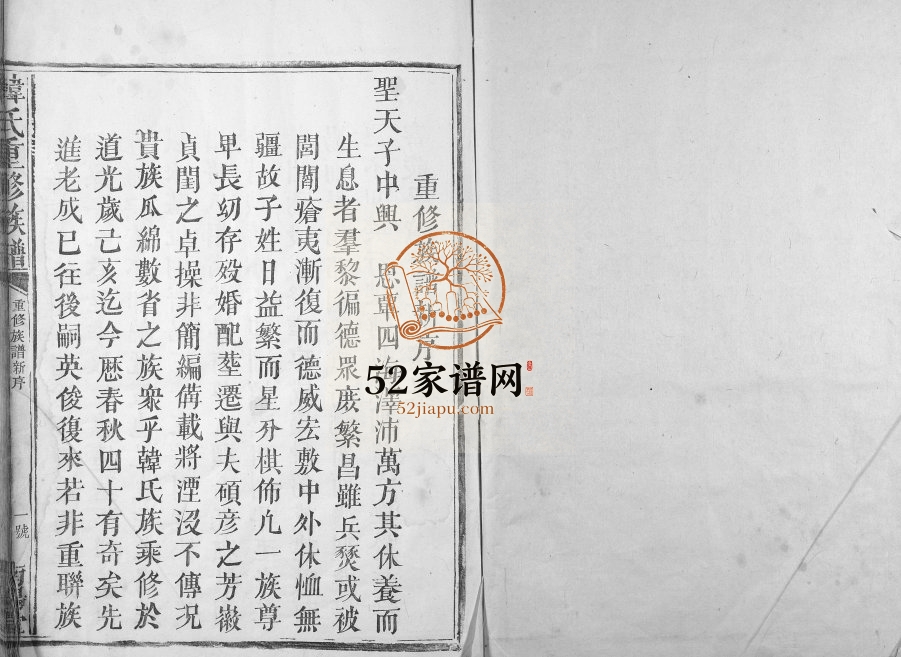 重修族譜新序
聖天子中興 恩覃四海澤沛萬方其休養而
生息者羣黎徧德眾庶繁昌雖兵燹或被
閭閻瘡夷漸復而德威宏敷中外休恤無
疆故子姓日益繁而星分棋佈凢一族尊
卑長幼存殁婚配塟遷與夫碩彥之芳徽
貞閨之卓操非簡編備載將湮沒不傳况
貴族瓜綿數省之族衆乎韓氏族乘修於
道光歲己亥迄今厯春秋四十有奇矣先
進老成已徃後嗣英俊復來若非重聯族
韓氏重修族譜
重修族譜新序
一號
52家谱网
52jiapu.com